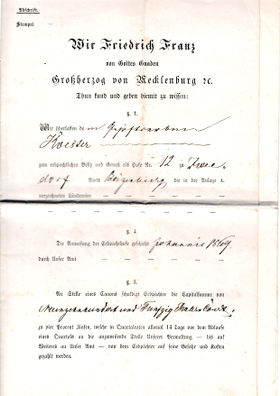 Abschrift.
Stempel
Wir Friedrich Franz
von Gottes Gnaden
Großherzog von Mecklenburg ꝛc.
Thun kund und geben hiemit zu wissen:
§ 1.
Wir überlassen dem
zum erbpachtlichen Besitz und Genuß als Hufe Nr. 12 zu
dorf Amts die in der Anlage A.
verzeichneten Ländereien
§ 2.
Die Anweisung der Erbpachthufe geschieht Johannis 1869
durch Unser Amt
§ 3.
An Stelle eines Canons schuldiget Erbpächter die Capitalsumme von
Neunzehnhundert und Fünfzig
zu vier Procent Zinsen, welche in Quartalraten allemal 14 Tage vor dem Ablaufe
eines Quartals an die anzuweisende Stelle Unserer Verwaltung – bis auf
Weiteres an Unser Amt – von dem Erbpächter auf seine Gefahr und Kosten
gezahlt werden.